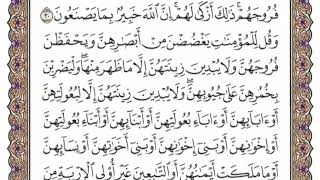 فُرُوجَهُمْ ذَٰلِكَ أَزْكَىٰ لَهُمْ إِنَّ ٱللَّهَ خَبِيرٌۢ بِمَا يَصْنَعُونَ ٣٠
وَقُل لِّلْمُؤْمِنَٰتِ يَغْضُضْنَ مِنْ أَبْصَٰرِهِنَّ وَيَحْفَظْنَ
فُرُوجَهُنَّ وَلَا يُبْدِينَ زِينَتَهُنَّ إِلَّا مَا ظَهَرَ مِنْهَا وَلْيَضْرِبْنَ
بِخُمُرِهِنَّ عَلَىٰ جُيُوبِهِنَّ وَلَا يُبْدِينَ زِينَتَهُنَّ إِلَّا لِبُعُولَتِهِنَّ
أَوْ ءَابَآئِهِنَّ أَوْ ءَابَآءِ بُعُولَتِهِنَّ أَوْ أَبْنَآئِهِنَّ أَوْ أَبْنَآءِ بُعُولَتِهِنَّ
أَوْ إِخْوَٰنِهِنَّ أَوْ بَنِىٓ إِخْوَٰنِهِنَّ أَوْ بَنِىٓ أَخَوَٰتِهِنَّ أَوْ نِسَآئِهِنَّ
أَوْ مَا مَلَكَتْ أَيْمَٰنُهُنَّ أَوِ ٱلتَّٰبِعِينَ غَيْرِ أُو۟لِى ٱلْإِرْبَةِ مِنَ